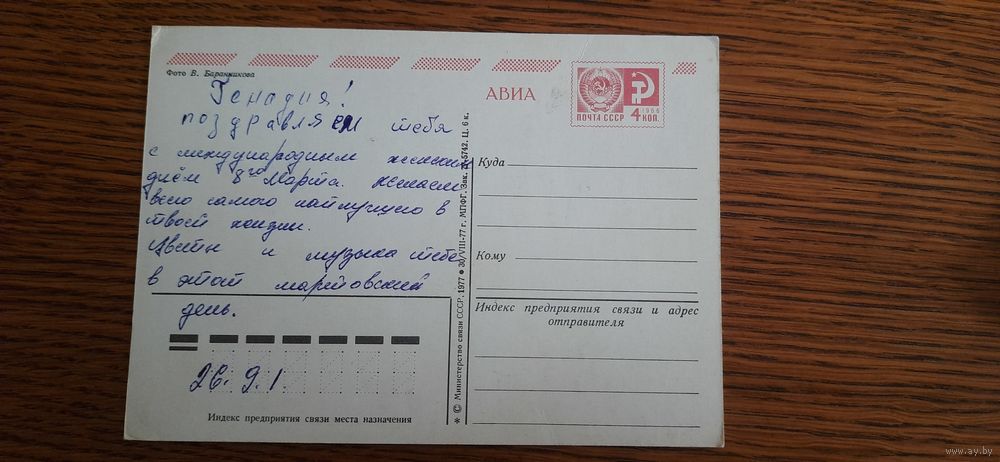 Фото В. Баранникова
Генадия!
поздравляем тебя
с международным женским
днём 8го Марта. желаем
всего самого наилучшего в
твоей жизни.
Цветы и музыка тебе
в этот мартовский
день.
26. 9. 1.
Индекс предприятия связи места назначения
* © Министерство связи СССР. 1977 * 30/VIII-77 г. МПФГ. Зак. 5742. Ц. 6 к.
АВИА
ПОЧТА СССР
1966
4 КОП.
Куда
Кому
Индекс предприятия связи и адрес
отправителя
www.ay.by